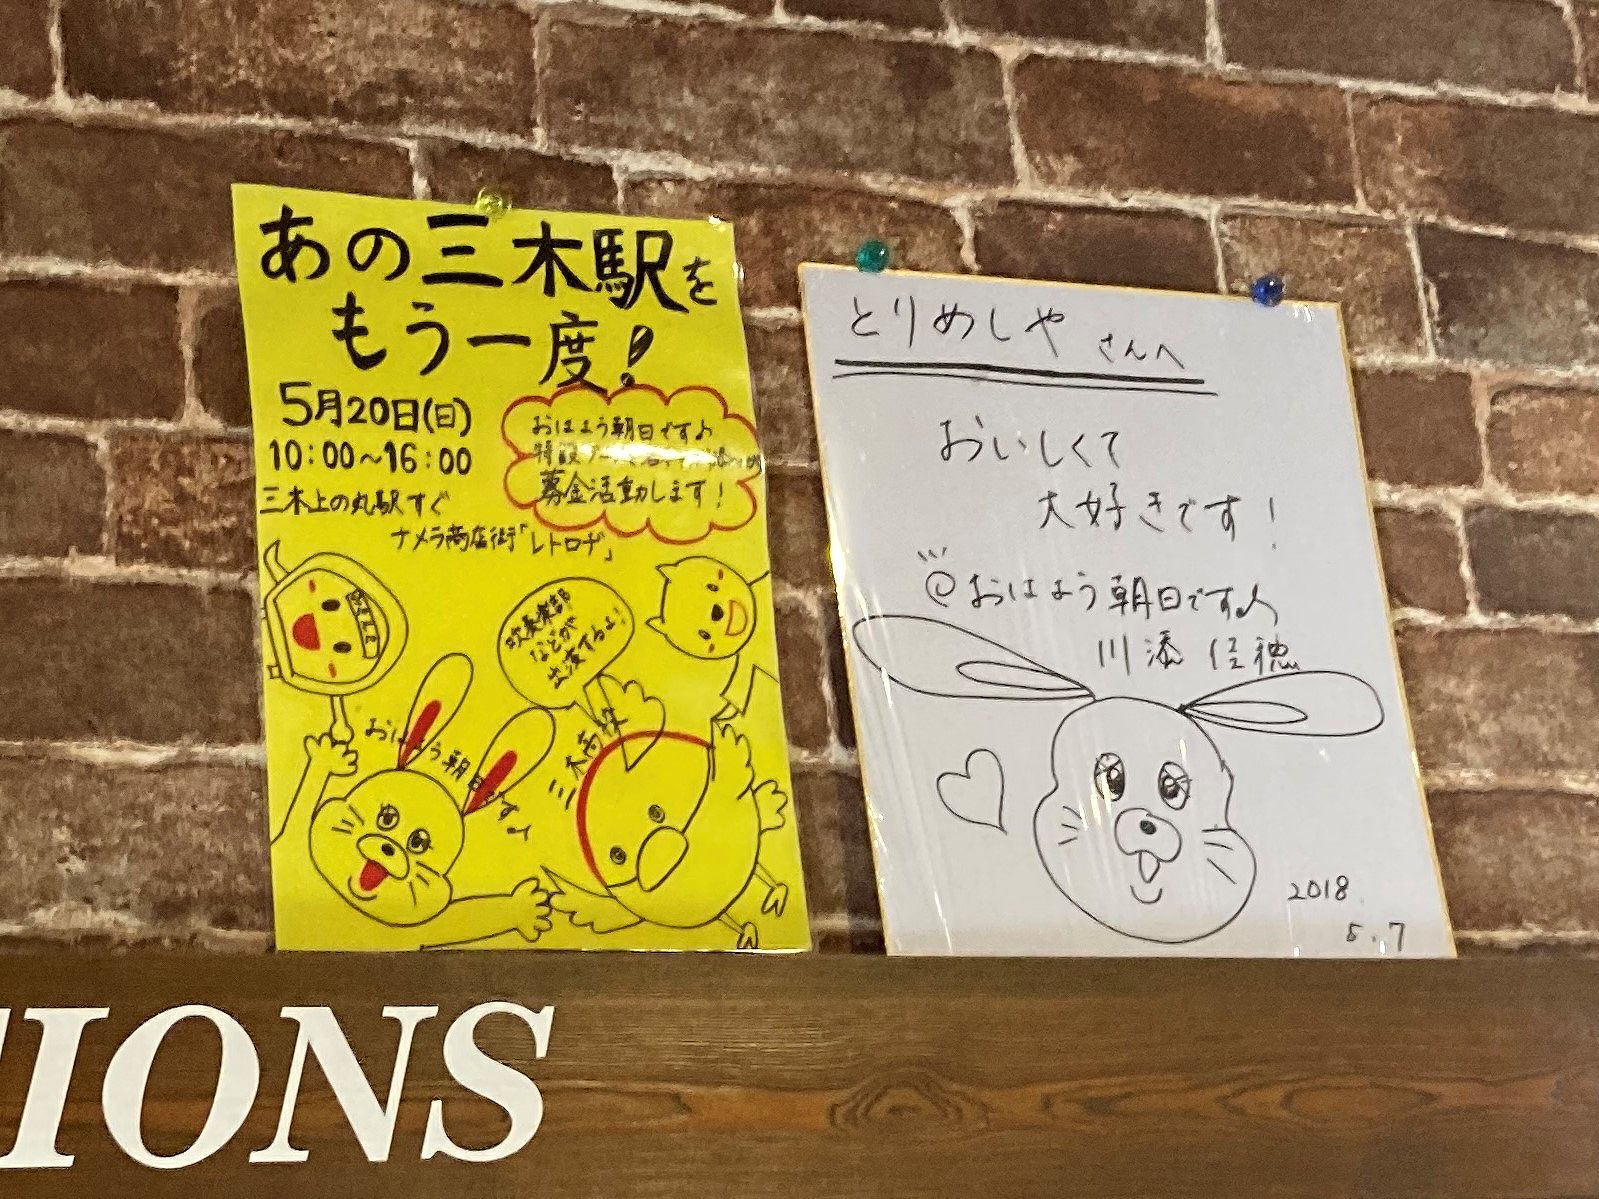 あの三木駅を
もう一度!
5月20日(日)
10:00~16:00
三木上の丸駅すぐ
ナメラ商店街「レトロヂ」
おはよう朝日です♪
特設
募金活動します!
吹奏楽部
などが
出演するよ!!
おはよう朝日です♪
とりめしや さんへ
おいしくて
大好きです!
@おはよう朝日です♪
川添 佳穂
2018
5.7
IONS